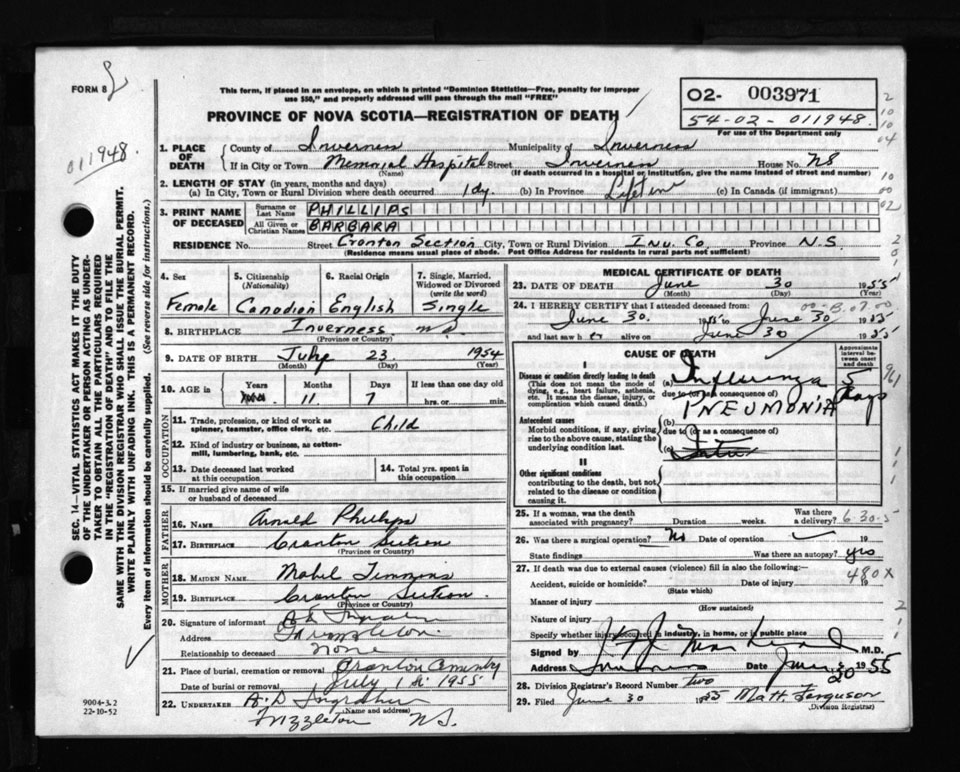 FORM 8
011948.
This form, if placed in an envelope, on which is printed "Dominion Statistics—Free, penalty for improper
use $50," and properly addressed will pass through the mail "FREE"
PROVINCE OF NOVA SCOTIA—REGISTRATION OF DEATH
O2- 003971
54-02-011948.
For use of the Department only
1. PLACE OF DEATH
County of Inverness Municipality of Inverness
If in City or Town Memorial Hospital Street Inverness House No. NS
(Name) (If death occurred in a hospital or institution, give the name instead of street and number)
2. LENGTH OF STAY (in years, months and days)
(a) In City, Town or Rural Division where death occurred 1 dy. (b) In Province Lifetime (c) In Canada (if immigrant)
3. PRINT NAME OF DECEASED
Surname or Last Name PHILLIPS
All Given or Christian Names BARBARA
RESIDENCE No. Street Cranton Section City, Town or Rural Division Inv. Co. Province N.S.
(Residence means usual place of abode. Post Office Address for residents in rural parts not sufficient)
SEC. 14—VITAL STATISTICS ACT MAKES IT THE DUTY
OF THE UNDERTAKER OR PERSON ACTING AS UNDER-
TAKER TO OBTAIN ALL THE PARTICULARS REQUIRED
IN THE "REGISTRATION OF DEATH" AND TO FILE THE
SAME WITH THE DIVISION REGISTRAR WHO SHALL ISSUE THE BURIAL PERMIT.
WRITE PLAINLY WITH UNFADING INK. THIS IS A PERMANENT RECORD.
Every item of information should be carefully supplied. (See reverse side for instructions.)
4. Sex 5. Citizenship (Nationality) 6. Racial Origin 7. Single, Married, Widowed or Divorced (write the word)
Female Canadian English Single
8. BIRTHPLACE Inverness N.S.
(Province or Country)
9. DATE OF BIRTH July 23. 1954
(Month) (Day) (Year)
10. AGE in Years Months Days If less than one day old
11 7 hrs. or min.
OCCUPATION
11. Trade, profession, or kind of work as
spinner, teamster, office clerk, etc. Child
12. Kind of industry or business, as cotton-
mill, lumbering, bank, etc.
13. Date deceased last worked
at this occupation
14. Total yrs. spent in
this occupation
15. If married give name of wife
or husband of deceased
FATHER
16. NAME Arnold Phillips
17. BIRTHPLACE Cranton Section
(Province or Country)
MOTHER
18. MAIDEN NAME Mabel Timmons
19. BIRTHPLACE Cranton Section.
(Province or Country)
20. Signature of informant
Address
Relationship to deceased none
21. Place of burial, cremation or removal Cranton Cemetery
Date of burial or removal July 1st 1955
22. UNDERTAKER A. D. Ingraham
(Name and address)
Frizzleton NS.
9004-3.2
22-10-52
MEDICAL CERTIFICATE OF DEATH
23. DATE OF DEATH June 30 1955
(Month) (Day) (Year)
24. I HEREBY CERTIFY that I attended deceased from:
June 30. 1955 to June 30 1955
and last saw h er alive on June 30 1955
CAUSE OF DEATH
Approximate interval between onset and death
I
Disease or condition directly leading to death
(This does not mean the mode of
dying, e.g., heart failure, asthenia,
etc. It means the disease, injury, or
complication which caused death.)
(a) Influenza 5 days
due to (or as a consequence of)
PNEUMONIA
Antecedent causes
Morbid conditions, if any, giving
rise to the above cause, stating the
underlying condition last.
(b)
due to (or as a consequence of)
(c)
II
Other significant conditions
contributing to the death, but not
related to the disease or condition
causing it.
25. If a woman, was the death
associated with pregnancy? Duration weeks. Was there a delivery? 6-30-5
26. Was there a surgical operation? No Date of operation
State findings Was there an autopsy? yes
27. If death was due to external causes (violence) fill in also the following:
480X
Accident, suicide or homicide? Date of injury 19
(State which)
Manner of injury
(How sustained)
Nature of injury
Specify whether injury occurred in industry, in home, or in public place
Signed by M.D.
Address Inverness Date June 30 1955
28. Division Registrar's Record Number Two
29. Filed June 30 1955 Matt. Ferguson
(Division Registrar)